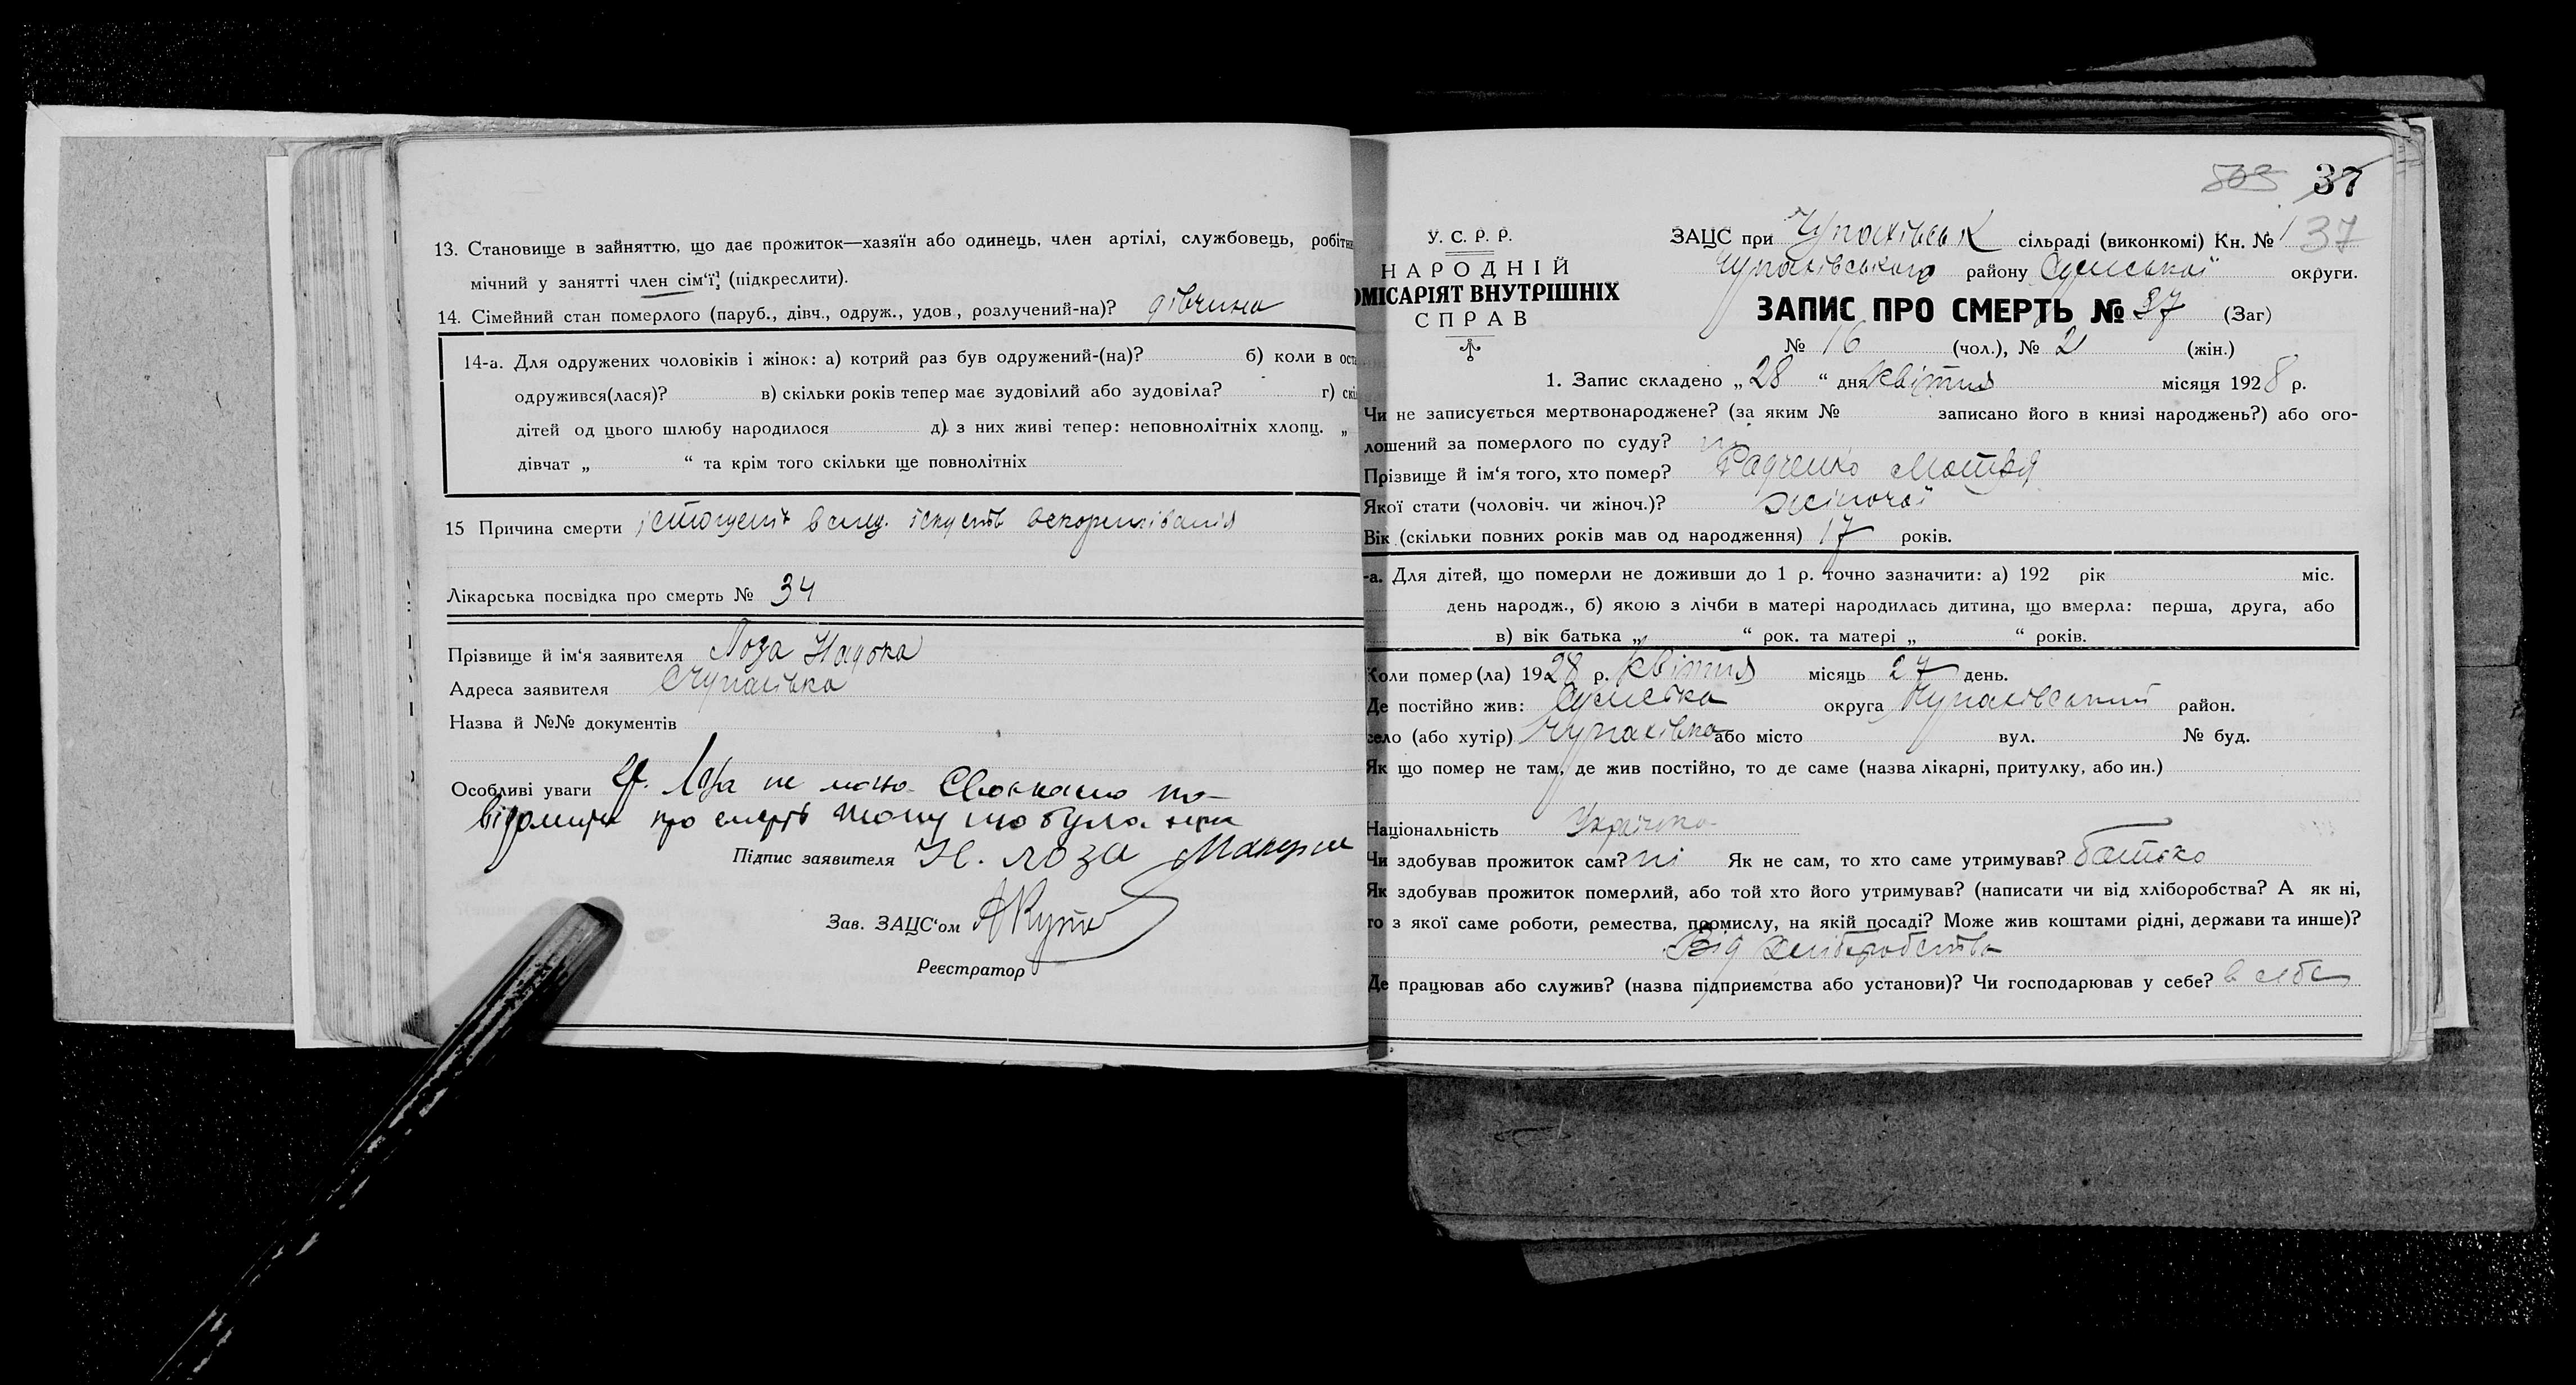 13. Становище в зайняттю, що дає прожиток—хазяїн або одинець, член артілі, службовець, робітн
мічний у занятті член сім'ї, (підкреслити).
14. Сімейний стан померлого (паруб., дівч., одруж., удов., розлучений-на)? дівчина
14-а. Для одружених чоловіків і жінок: а) котрий раз був одружений-(на)? б) коли в ост
одружився(лася)? в) скільки років тепер має зудовілий або зудовіла? г) скі
дітей од цього шлюбу народилося д) з них живі тепер: неповнолітніх хлопц. „
дівчат „ “ та крім того скільки ще повнолітніх
15 Причина смерти
Лікарська посвідка про смерть № 34
Прізвище й ім'я заявителя Лоза
Адреса заявителя с Чупахівка
Назва й №№ документів
Особливі уваги Гр. Лоза не могла по-
відомити про смерть тому що була
Підпис заявителя Н. лоза
Зав. ЗАЦС'ом
Реєстратор
503 37
У. С. Р. Р.
НАРОДНІЙ
ОМІСАРІЯТ ВНУТРІШНІХ
СПРАВ
ЗАЦС при Чупахівськ сільраді (виконкомі) Кн. № 1 37
Чупахівського району Сумської округи.
ЗАПИС ПРО СМЕРТЬ № 37 (Заг)
№ 16 (чол.), № 21 (жін.)
1. Запис складено „28“ дня квітня місяця 1928 р.
Чи не записується мертвонароджене? (за яким № записано його в книзі народжень?) або ого-
лошений за померлого по суду? ні
Прізвище й ім'я того, хто помер? Радченко Мотря
Якої стати (чоловіч. чи жіноч.)? жіночої
Вік (скільки повних років мав од народження) 17 років.
-а. Для дітей, що померли не доживши до 1 р. точно зазначити: а) 192 рік міс.
день народж., б) якою з лічби в матері народилась дитина, що вмерла: перша, друга, або
в) вік батька „ “ рок. та матері „ “ років.
Коли помер(ла) 1928 р. квітня місяць 27 день.
Де постійно жив: Сумська округа Чупахівський район.
село (або хутір) Чупахівка або місто вул. № буд.
Як що помер не там, де жив постійно, то де саме (назва лікарні, притулку, або ин.)
Національність Українка
Чи здобував прожиток сам? ні Як не сам, то хто саме утримував? батько
Як здобував прожиток померлий, або той хто його утримував? (написати чи від хліборобства? А як ні,
то з якої саме роботи, ремества, промислу, на якій посаді? Може жив коштами рідні, держави та инше)?
Від хліборобства
Де працював або служив? (назва підприємства або установи)? Чи господарював у себе? в себе